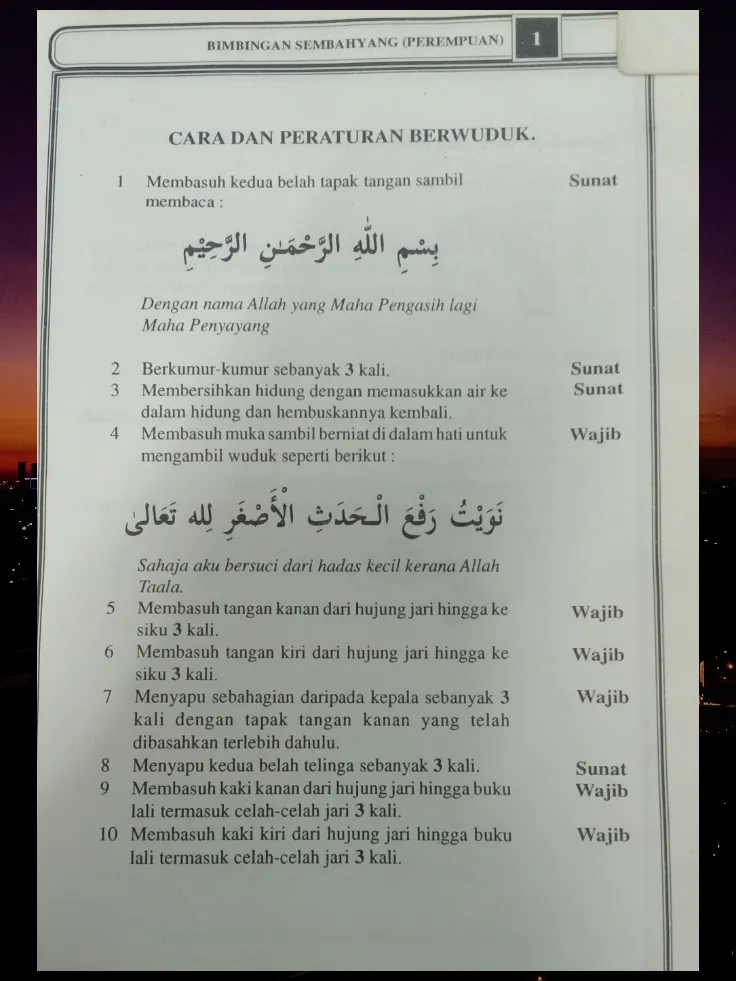 BIMBINGAN SEMBAHYANG (PEREMPUAN) 1
CARA DAN PERATURAN BERWUDUK.
1 Membasuh kedua belah tapak tangan sambil Sunat
membaca :
بِسْمِ اللّٰهِ الرَّحْمَـٰنِ الرَّحِيْمِ
Dengan nama Allah yang Maha Pengasih lagi
Maha Penyayang
2 Berkumur-kumur sebanyak 3 kali. Sunat
3 Membersihkan hidung dengan memasukkan air ke Sunat
dalam hidung dan hembuskannya kembali.
4 Membasuh muka sambil berniat di dalam hati untuk Wajib
mengambil wuduk seperti berikut :
نَوَيْتُ رَفْعَ الْحَدَثِ الْأَصْغَرِ لِله تَعَالىٰ
Sahaja aku bersuci dari hadas kecil kerana Allah
Taala.
5 Membasuh tangan kanan dari hujung jari hingga ke Wajib
siku 3 kali.
6 Membasuh tangan kiri dari hujung jari hingga ke Wajib
siku 3 kali.
7 Menyapu sebahagian daripada kepala sebanyak 3 Wajib
kali dengan tapak tangan kanan yang telah
dibasahkan terlebih dahulu.
8 Menyapu kedua belah telinga sebanyak 3 kali. Sunat
9 Membasuh kaki kanan dari hujung jari hingga buku Wajib
lali termasuk celah-celah jari 3 kali.
10 Membasuh kaki kiri dari hujung jari hingga buku Wajib
lali termasuk celah-celah jari 3 kali.